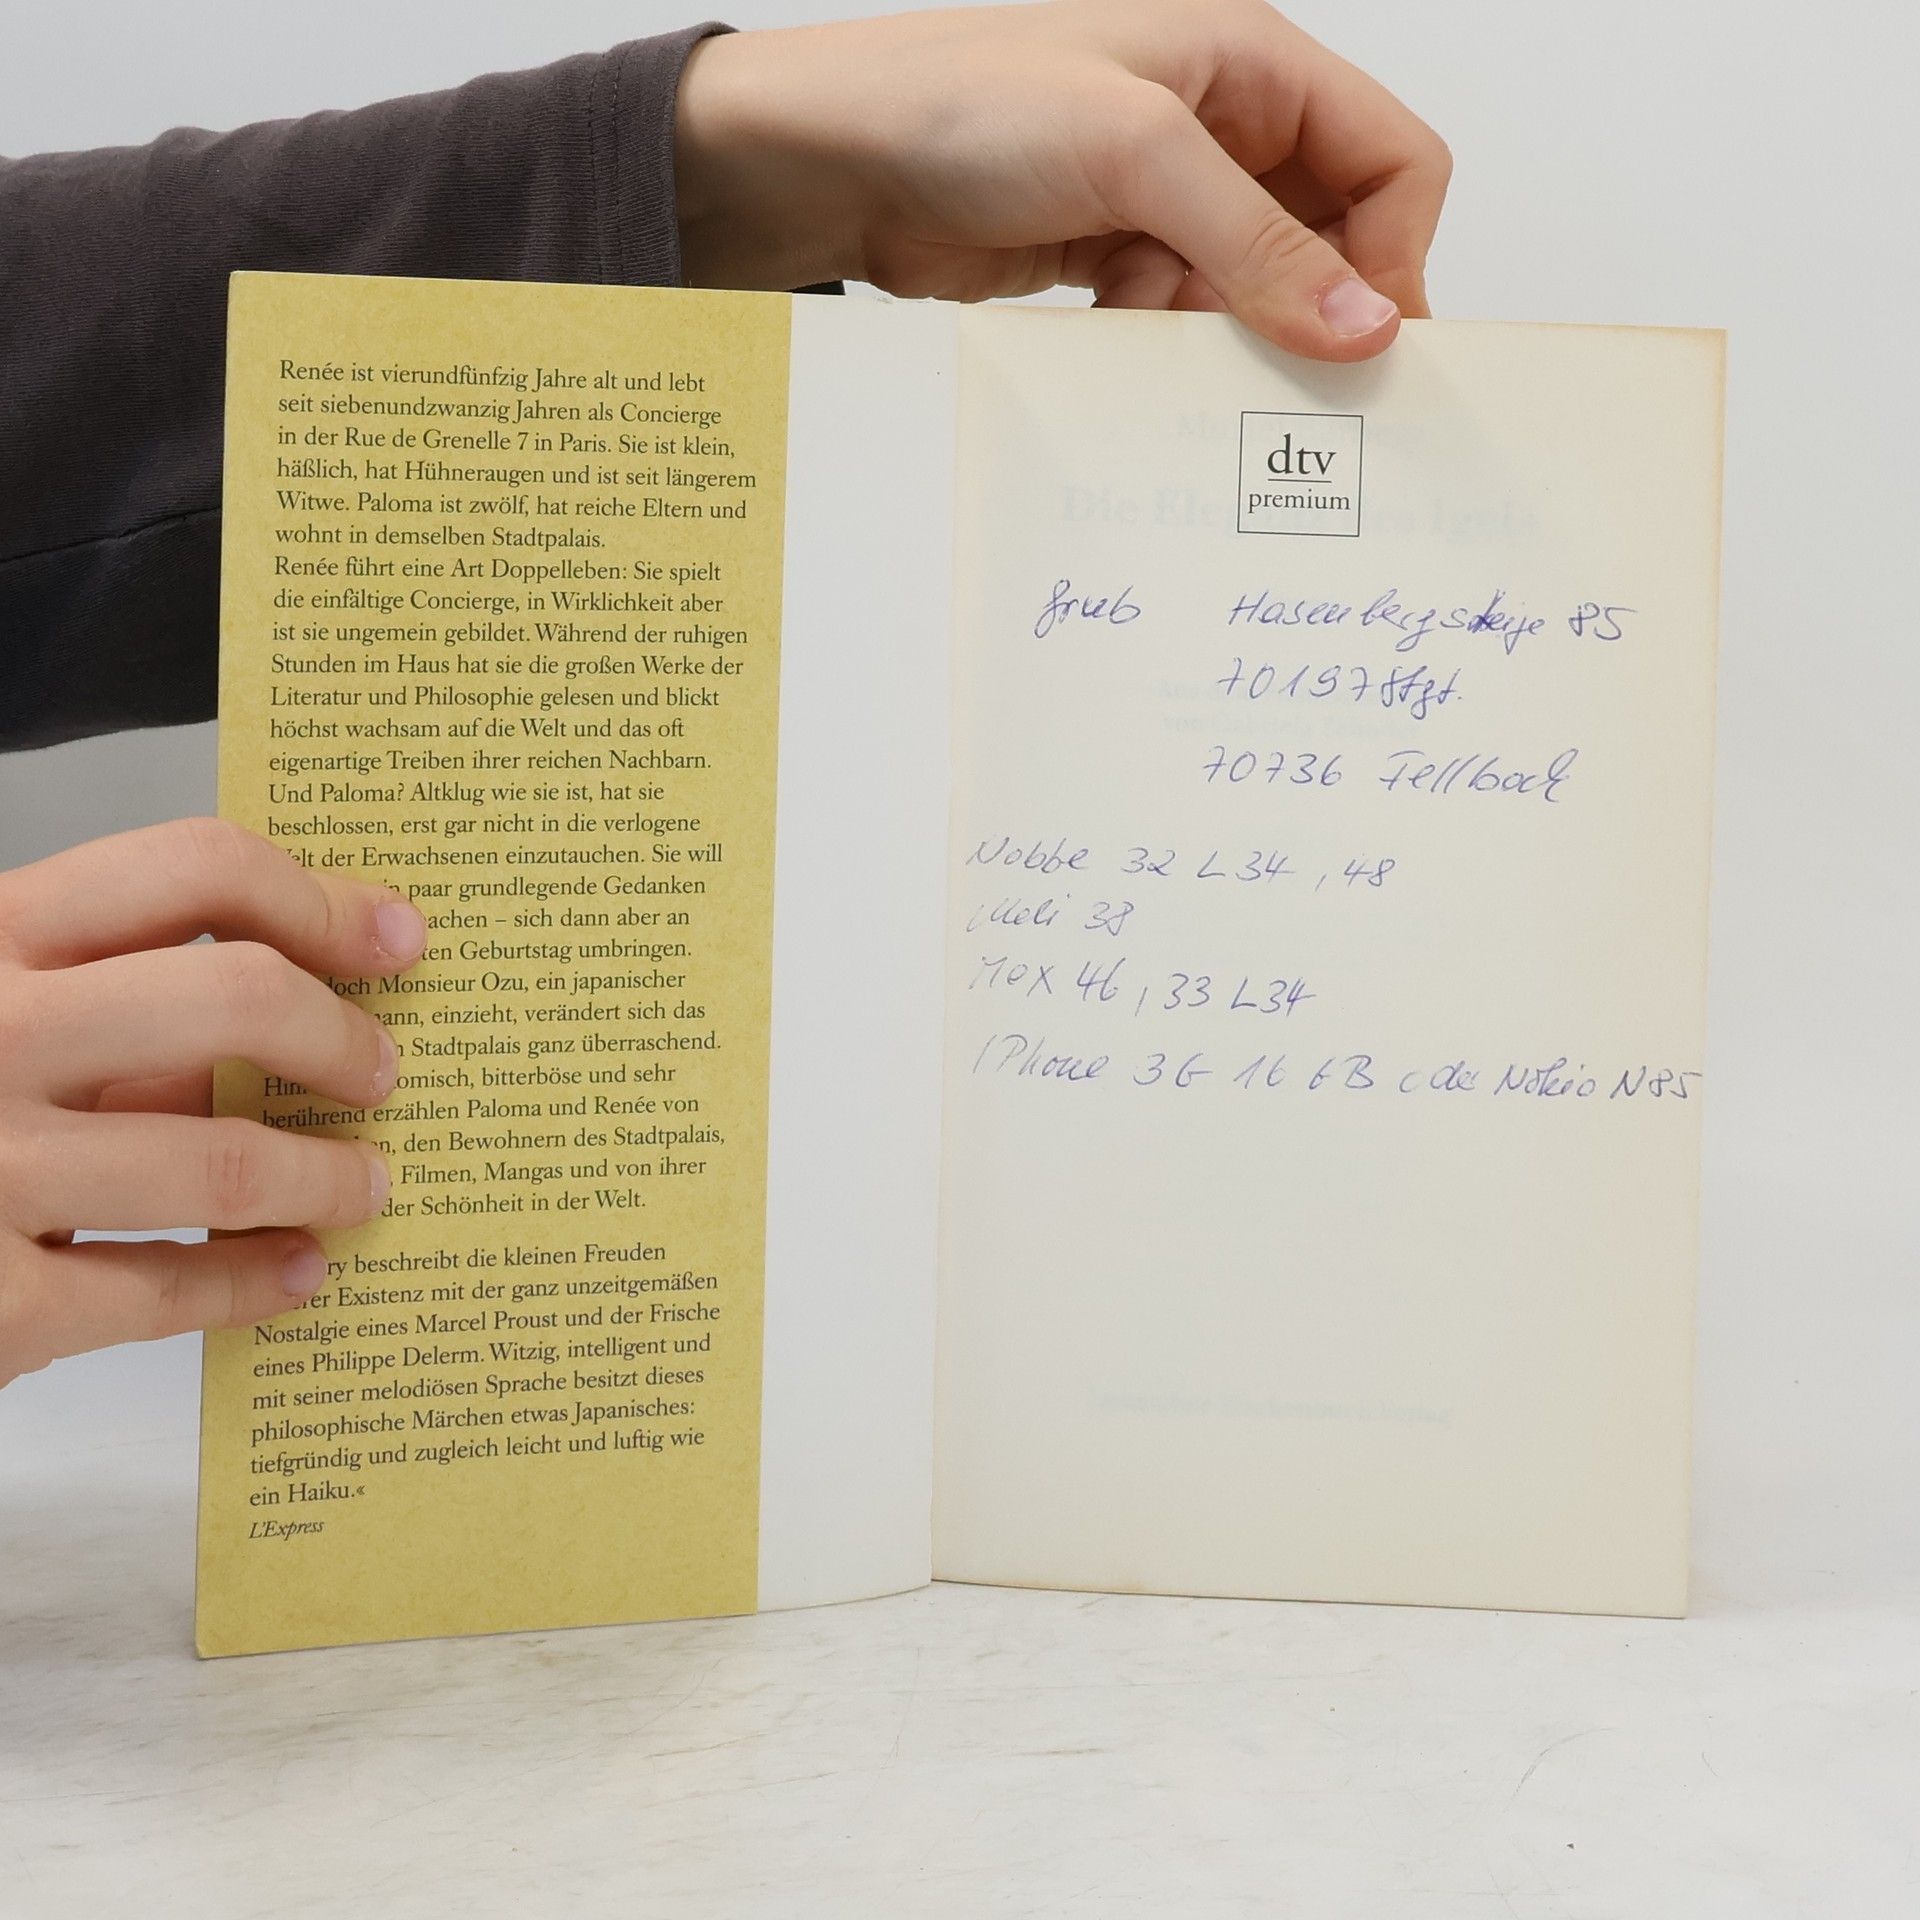 Renée ist vierundfünfzig Jahre alt und lebt
seit siebenundzwanzig Jahren als Concierge
in der Rue de Grenelle 7 in Paris. Sie ist klein,
häßlich, hat Hühneraugen und ist seit längerem
Witwe. Paloma ist zwölf, hat reiche Eltern und
wohnt in demselben Stadtpalais.
Renée führt eine Art Doppelleben: Sie spielt
die einfältige Concierge, in Wirklichkeit aber
ist sie ungemein gebildet. Während der ruhigen
Stunden im Haus hat sie die großen Werke der
Literatur und Philosophie gelesen und blickt
höchst wachsam auf die Welt und das oft
eigenartige Treiben ihrer reichen Nachbarn.
Und Paloma? Altklug wie sie ist, hat sie
beschlossen, erst gar nicht in die verlogene
elt der Erwachsenen einzutauchen. Sie will
paar grundlegende Gedanken
achen – sich dann aber an
ten Geburtstag umbringen.
och Monsieur Ozu, ein japanischer
ann, einzieht, verändert sich das
Stadtpalais ganz überraschend.
omisch, bitterböse und sehr
berührend erzählen Paloma und Renée von
n, den Bewohnern des Stadtpalais,
, Filmen, Mangas und von ihrer
der Schönheit in der Welt.
ry beschreibt die kleinen Freuden
rer Existenz mit der ganz unzeitgemäßen
Nostalgie eines Marcel Proust und der Frische
eines Philippe Delerm. Witzig, intelligent und
mit seiner melodiösen Sprache besitzt dieses
philosophische Märchen etwas Japanisches:
tiefgründig und zugleich leicht und luftig wie
ein Haiku.«
L'Express
dtv
premium
Grub Hasenbergsteige 85
70197 Stgt.
70736 Fellbach
Nobbe 32 L34, 48
Meli 38
Max 46, 33 L34
IPhone 3G 16 GB oder Nokia N85